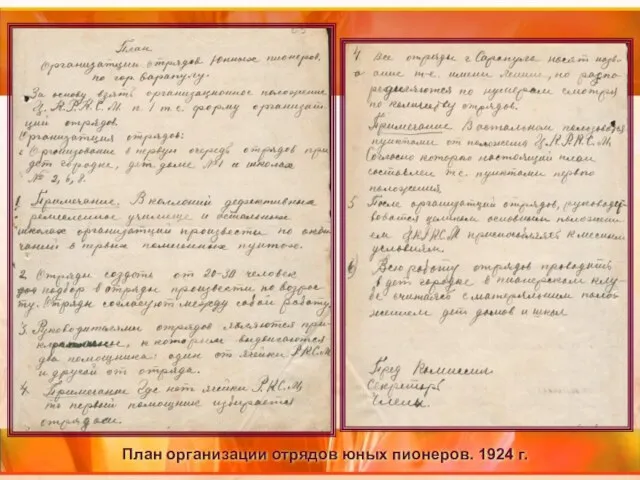 План
Организации отрядов Юных пионеров.
по гор. Сарапулу.
За основу взять организационное положение
Ц.К.Р.К.С.М. п. 1 т.е. форму организа-
ции отрядов.
Организация отрядов:
1. Организование в первую очередь отрядов при
дет городке, дет доме №1 и школах
№ 2, 6, 8.
Примечание. В коллонии дефективных
ремесленное училище и остальных
школах организации произвести по окон
чании в первых помещенных пунктов.
2. Отряды создать от 20-30 человек
подбор в отряде произвести по возрас-
ту. Отряды согласуют между собой работу.
3. Руководителями отрядов являются при-
к которым выдвигаются
два помощника: один от ячейки Р.К.С.М.
и другой от отряда.
4. Примечание Где нет ячейки Р.К.С.М,
то первый помощник избирается
отрядом.
4 Все отряды г. Сарапула носят назв-
ание т.е. имени Ленина, но распо-
ределяются по нумерам смотря
по количеству отрядов.
Примечание. В остальном пользоваться
пунктами от положения Ц.К.Р.К.С.М,
согласно которого настоящий план
составлен т.е. пунктами первого
положения
5 После организации отрядов, руководст-
воваться целиком основным положени-
ем ЦКРКСМ приспособляясь к местным
условиям.
6 Всю работу отрядов проводить
в дет городке в пионерском клу-
бе считаясь с материальным поло-
жением дет домов и школ
Пред Комиссии
Секретарь
Члены.
План организации отрядов юных пионеров. 1924 г.